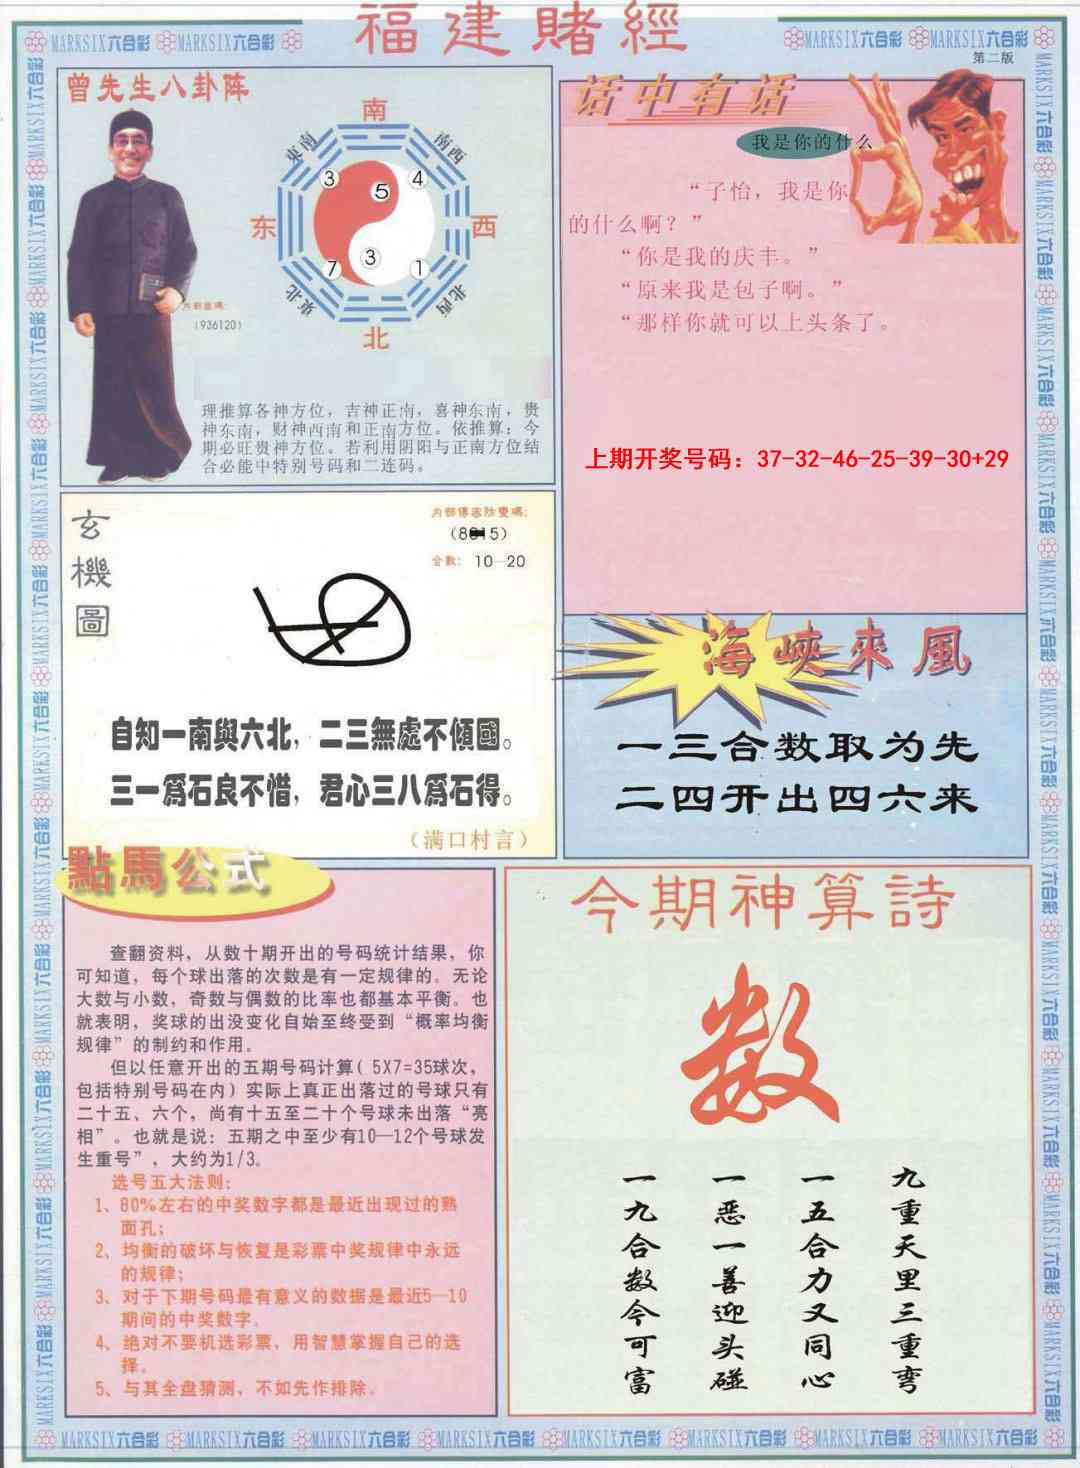 福建賭經
MARKSIX六合彩 MARKSIX六合彩
MARKSIX六合彩 MARKSIX六合彩
第二版
曾先生八卦阵
南
東南
南西
3
5
4
东
西
7
3
1
東北
北西
北
(936120)
理推算各神方位，吉神正南，喜神东南，贵
神东南，财神西南和正南方位。依推算：今
期必旺贵神方位。若利用阴阳与正南方位结
合必能中特别号码和二连码。
话中有话
我是你的什么
“子怡，我是你
的什么啊？”
“你是我的庆丰。”
“原来我是包子啊。”
“那样你就可以上头条了。
上期开奖号码：37-32-46-25-39-30+29
玄機圖
合數： 10—20
自知一南與六北，二三無處不傾國。
三一爲石良不惜，君心三八爲石得。
（满口村言）
海峽來風
一三合数取为先
二四开出四六来
點馬公式
查翻资料，从数十期开出的号码统计结果，你
可知道，每个球出落的次数是有一定规律的。无论
大数与小数，奇数与偶数的比率也都基本平衡。也
就表明，奖球的出没变化自始至终受到“概率均衡
规律”的制约和作用。
但以任意开出的五期号码计算（5X7=35球次，
包括特别号码在内）实际上真正出落过的号球只有
二十五、六个，尚有十五至二十个号球未出落“亮
相”。也就是说：五期之中至少有10—12个号球发
生重号”，大约为1/3。
选号五大法则：
1、80%左右的中奖数字都是最近出现过的熟
面孔；
2、均衡的破坏与恢复是彩票中奖规律中永远
的规律；
3、对于下期号码最有意义的数据是最近5—10
期间的中奖数字。
4、绝对不要机选彩票，用智慧掌握自己的选
择。
5、与其全盘猜测，不如先作排除。
今期神算詩
数
九重天里三重弯
一五合力又同心
一恶一善迎头碰
一九合数今可富
MARKSIX六合彩 MARKSIX六合彩 MARKSIX六合彩 MARKSIX六合彩 MARKSIX六合彩 MARKSIX六合彩 MARKSIX六合彩 MARKSIX六合彩